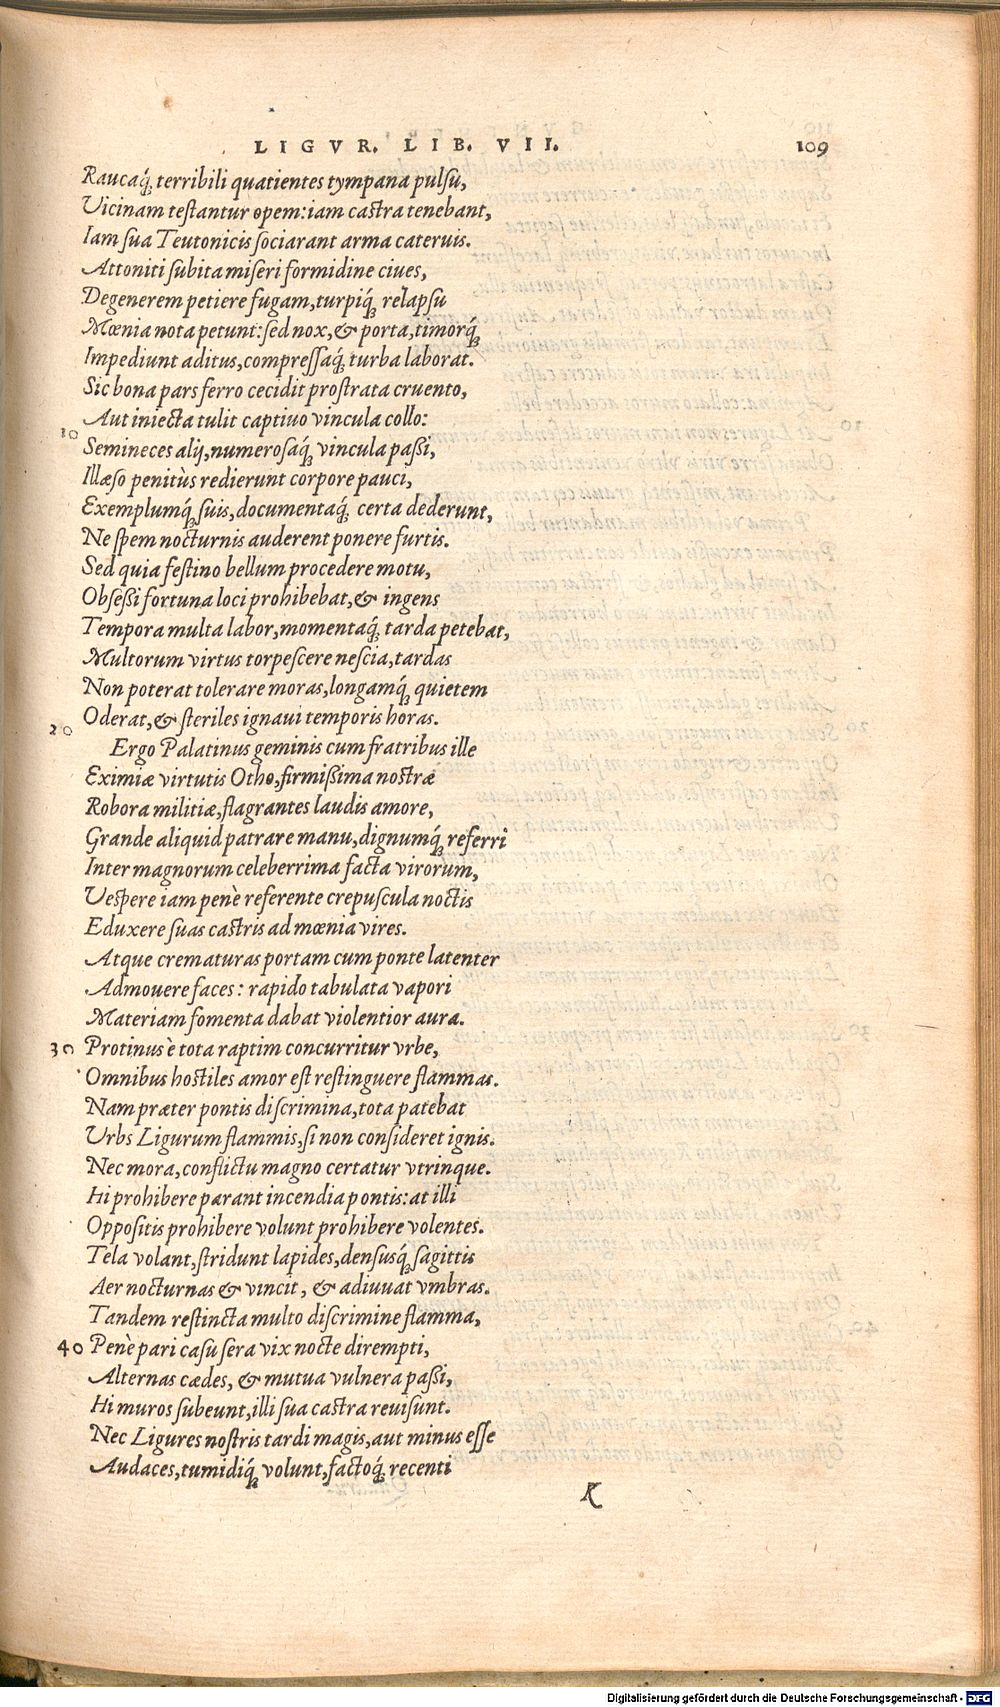 LIGVR. LIB. VII. 109
Raucaq́; terribili quatientes tympana pulſu,
Vicinam teſtantur opem: iam caſtra tenebant,
Iam ſua Teutonicis ſociarant arma cateruis.
Attoniti ſubita miſeri formidine ciues,
Degenerem petiere fugam, turpiq́; relapſu
Mœnia nota petunt: ſed nox, & porta, timorq́;
Impediunt aditus, compreſſaq́; turba laborat.
Sic bona pars ferro cecidit proſtrata cruento,
Aut iniecta tulit captiuo vincula collo:
10 Semineces alij, numeroſaq́; vincula paßi,
Illæſo penitùs redierunt corpore pauci,
Exemplumq́; ſuis, documentaq́; certa dederunt,
Ne ſpem nocturnis auderent ponere furtis.
Sed quia feſtino bellum procedere motu,
Obſeßi fortuna loci prohibebat, & ingens
Tempora multa labor, momentaq́; tarda petebat,
Multorum virtus torpeſcere neſcia, tardas
Non poterat tolerare moras, longamq́; quietem
Oderat, & ſteriles ignaui temporis horas.
20 Ergo Palatinus geminis cum fratribus ille
Eximiæ virtutis Otho, firmißima noſtræ
Robora militiæ, flagrantes laudis amore,
Grande aliquid patrare manu, dignumq́; referri
Inter magnorum celeberrima facta virorum,
Veſpere iam penè referente crepuſcula noctis
Eduxere ſuas caſtris ad mœnia vires.
Atque crematuras portam cum ponte latenter
Admouere faces: rapido tabulata vapori
Materiam fomenta dabat violentior aura.
30 Protinus è tota raptim concurritur vrbe,
Omnibus hoſtiles amor eſt reſtinguere flammas.
Nam præter pontis diſcrimina, tota patebat
Vrbs Ligurum flammis, ſi non conſideret ignis.
Nec mora, conflictu magno certatur vtrinque.
Hi prohibere parant incendia pontis: at illi
Oppoſitis prohibere volunt prohibere volentes.
Tela volant, ſtridunt lapides, denſusq́; ſagittis
Aer nocturnas & vincit, & adiuuat vmbras.
Tandem reſtincta multo diſcrimine flamma,
40 Penè pari caſu ſera vix nocte dirempti,
Alternas cædes, & mutua vulnera paßi,
Hi muros ſubeunt, illi ſua caſtra reuiſunt.
Nec Ligures noſtris tardi magis, aut minus eſſe
Audaces, tumidiq́; volunt, factoq́; recenti
K
Digitalisierung gefördert durch die Deutsche Forschungsgemeinschaft - DFG